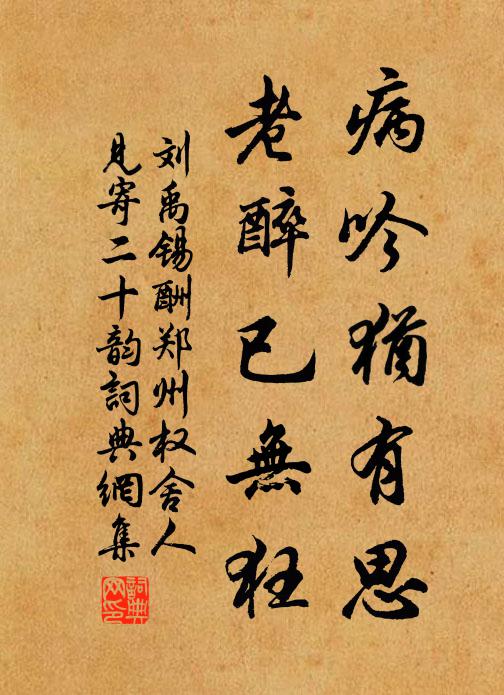 病吟猶有思
老醉已無狂
刘禹锡酬郑州权舍人
見寄二十韵詞典網集
詞典
网印